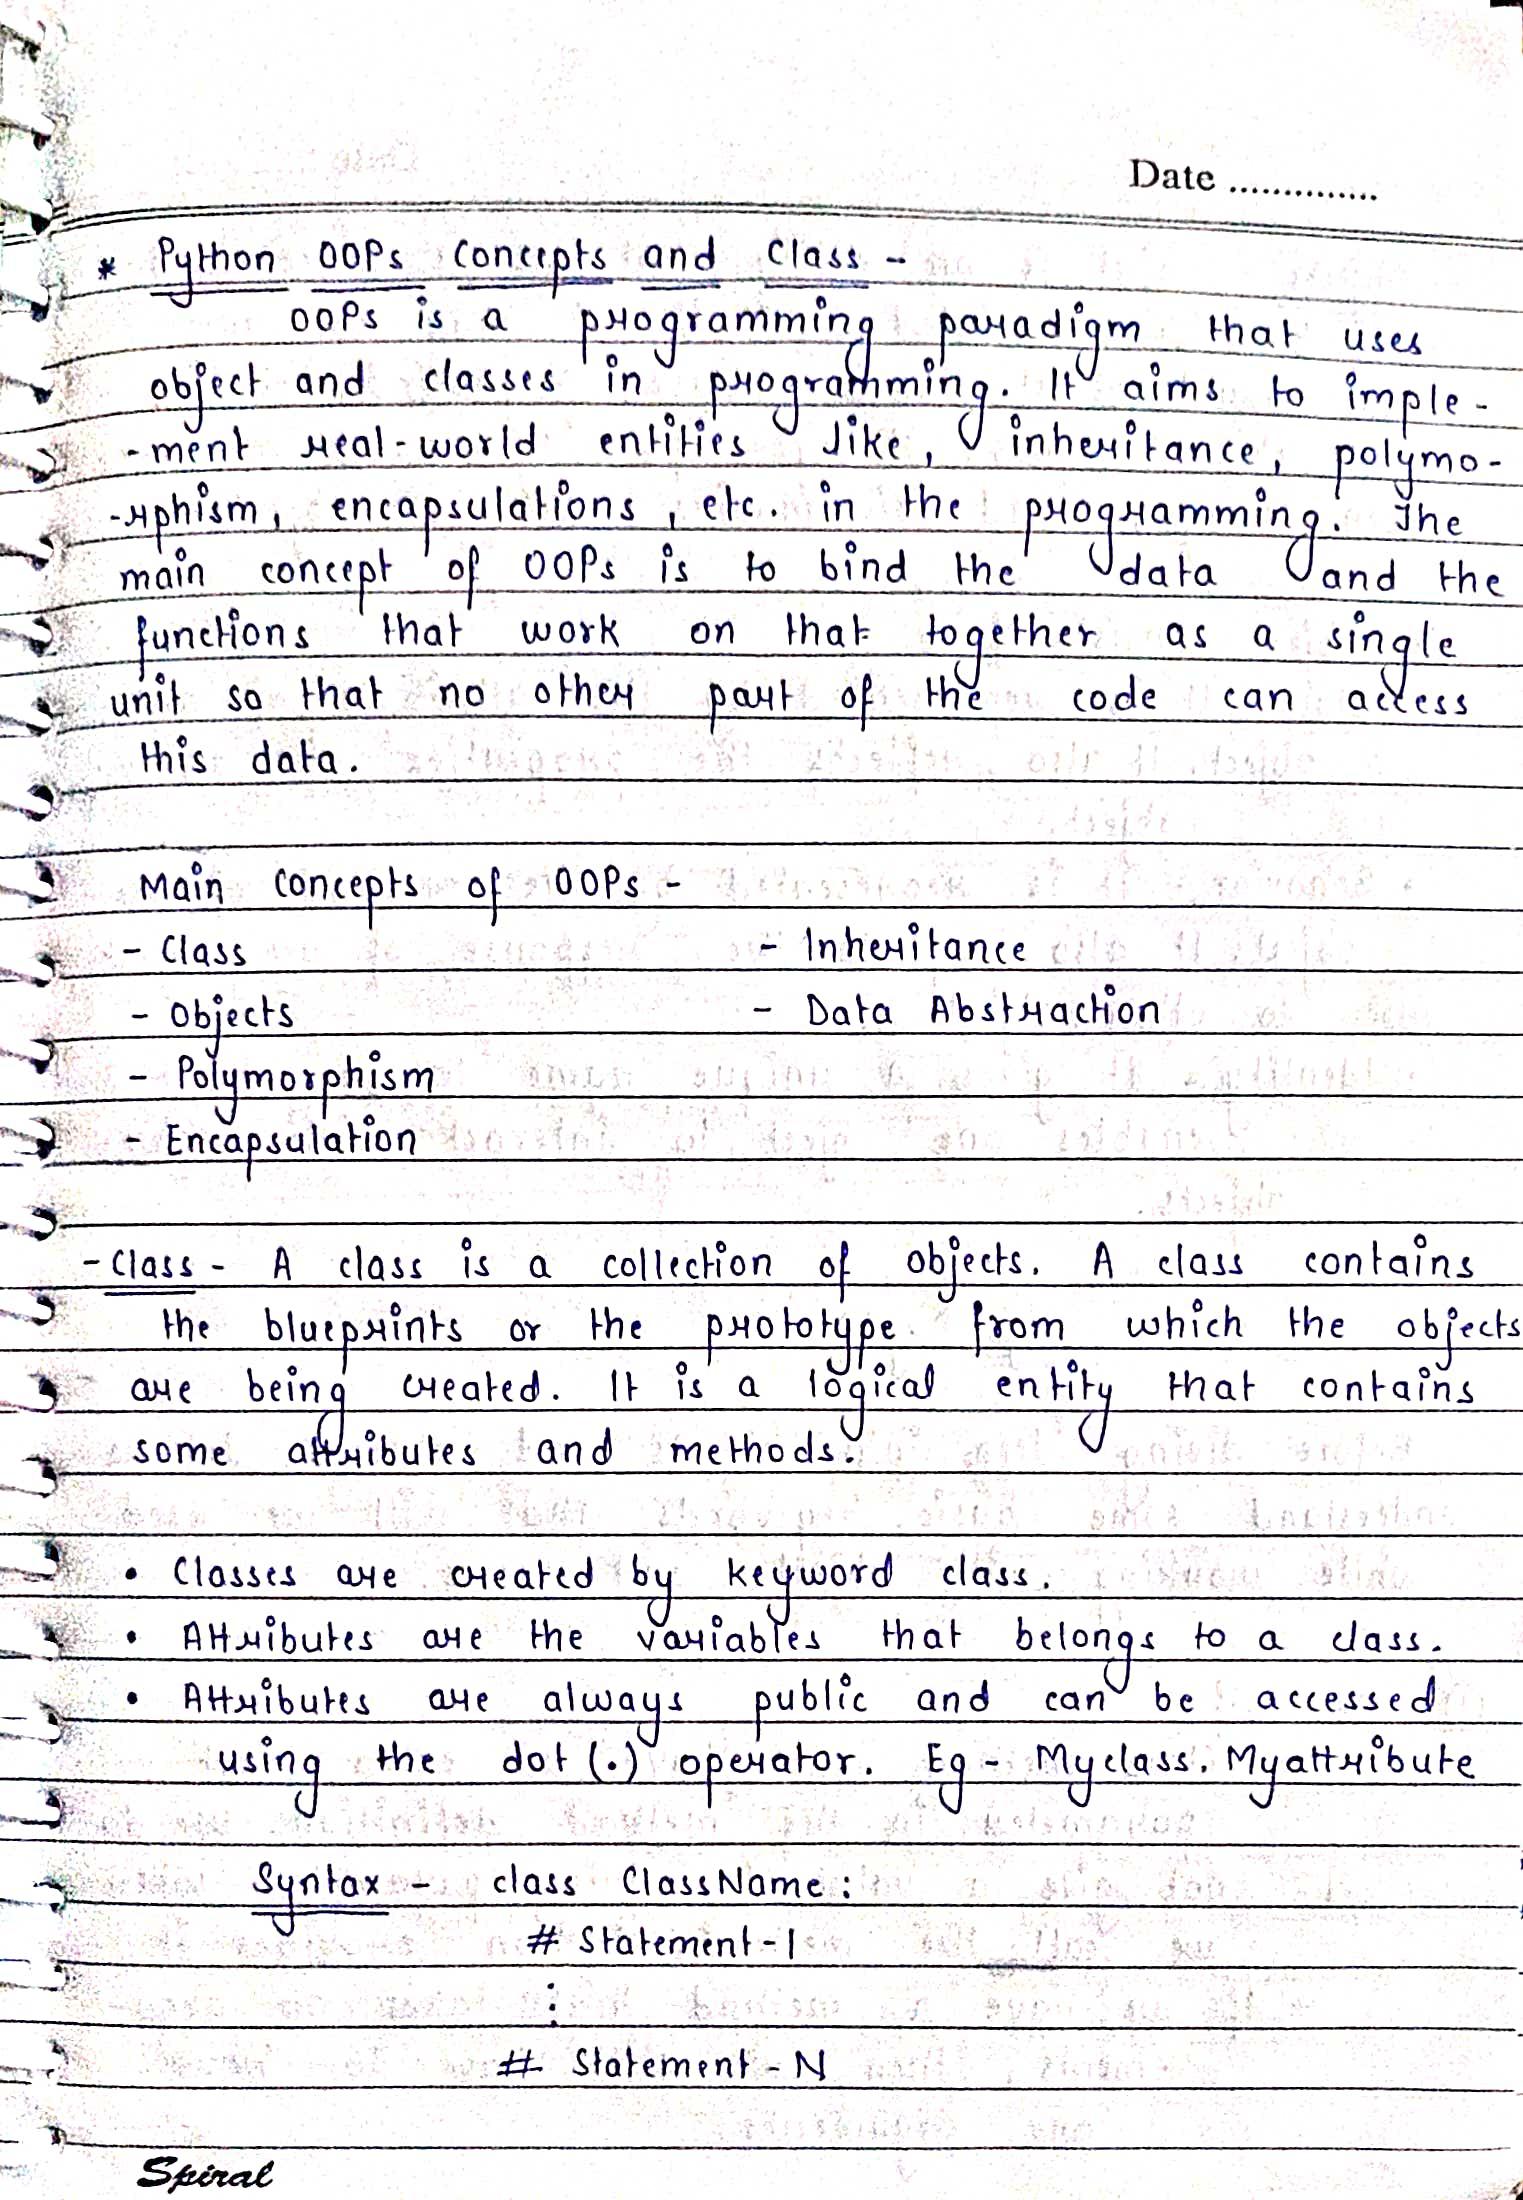 Date ..............
* Python OOPs Concepts and Class -
OOPs is a programming paradigm that uses
object and classes in programming. It aims to imple-
-ment real-world entities like, inheritance, polymo-
-rphism, encapsulations, etc. in the programming. The
main concept of OOPs is to bind the data and the
functions that work on that together as a single
unit so that no other part of the code can access
this data.
Main Concepts of OOPs -
- Class - Inheritance
- Objects - Data Abstraction
- Polymorphism
- Encapsulation
- Class - A class is a collection of objects. A class contains
the blueprints or the prototype from which the objects
are being created. It is a logical entity that contains
some attributes and methods.
• Classes are created by keyword class.
• Attributes are the variables that belongs to a class.
• Attributes are always public and can be accessed
using the dot (.) operator. Eg - Myclass. Myattribute
Syntax - class ClassName :
# Statement - 1
:
# Statement - N
Spiral